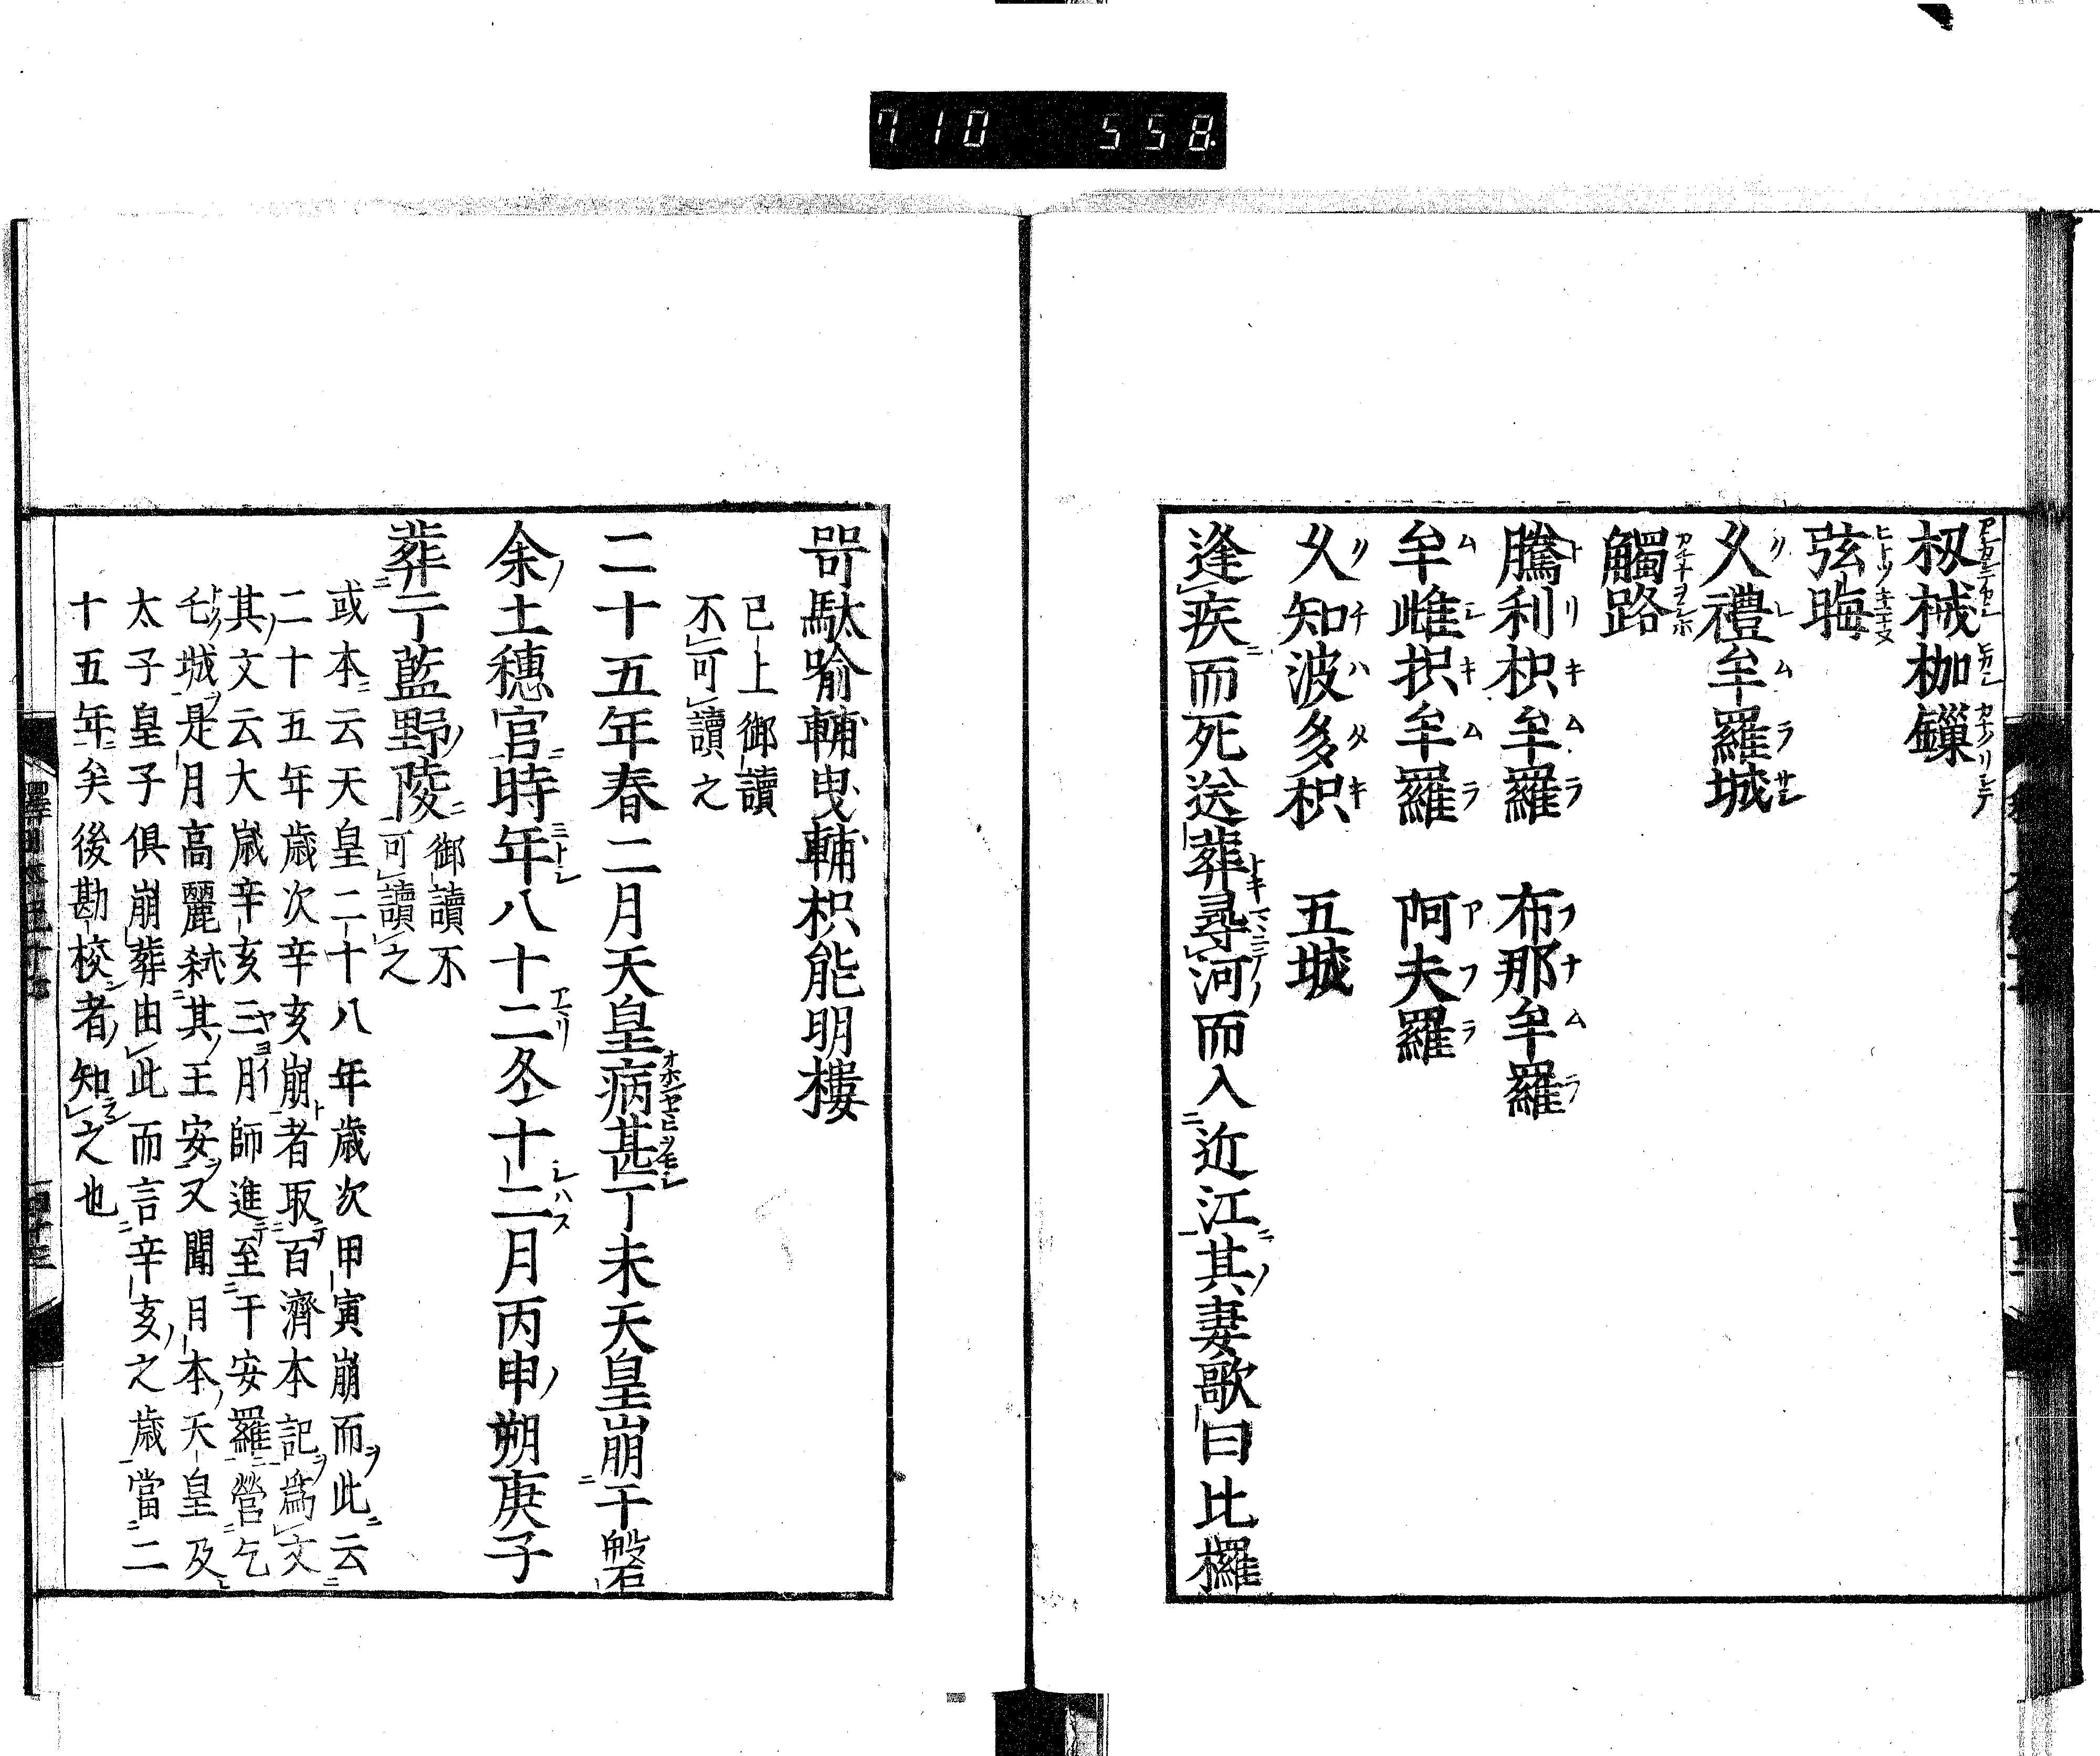 杻械枷鏁
弦晦
久禮牟羅城
觸路
騰利枳牟羅　布那牟羅
牟雌枳牟羅　阿夫羅
久知波多枳　五城
逢疾而死送葬尋河而入近江其妻歌曰比攞
哿駄喻輔曳輔枳能明樓
已上御讀
不可讀之
二十五年春二月天皇病甚丁未天皇崩于磐
余玉穗宮時年八十二冬十二月丙申朔庚子
葬于藍野陵
御讀不
可讀之
或本云天皇二十八年歳次甲寅崩而此云
二十五年歳次辛亥崩者取百濟本記爲文
其文云大歳辛亥三月師進至于安羅營乞
乇城是月高麗弑其王安又聞日本天皇及
太子皇子俱崩葬由此而言辛亥之歳當二
十五年矣後勘校者知之也
710 558